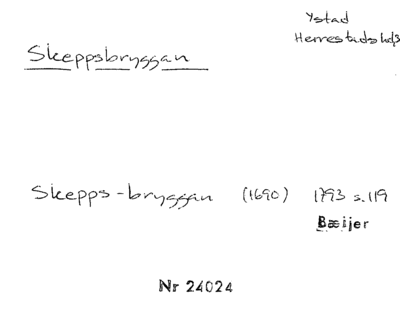 Ystad
Herrestads hd
Skeppsbryggan
Skepps-bryggan (1690) 1793 s. 119
Bæijer
Nr 24024